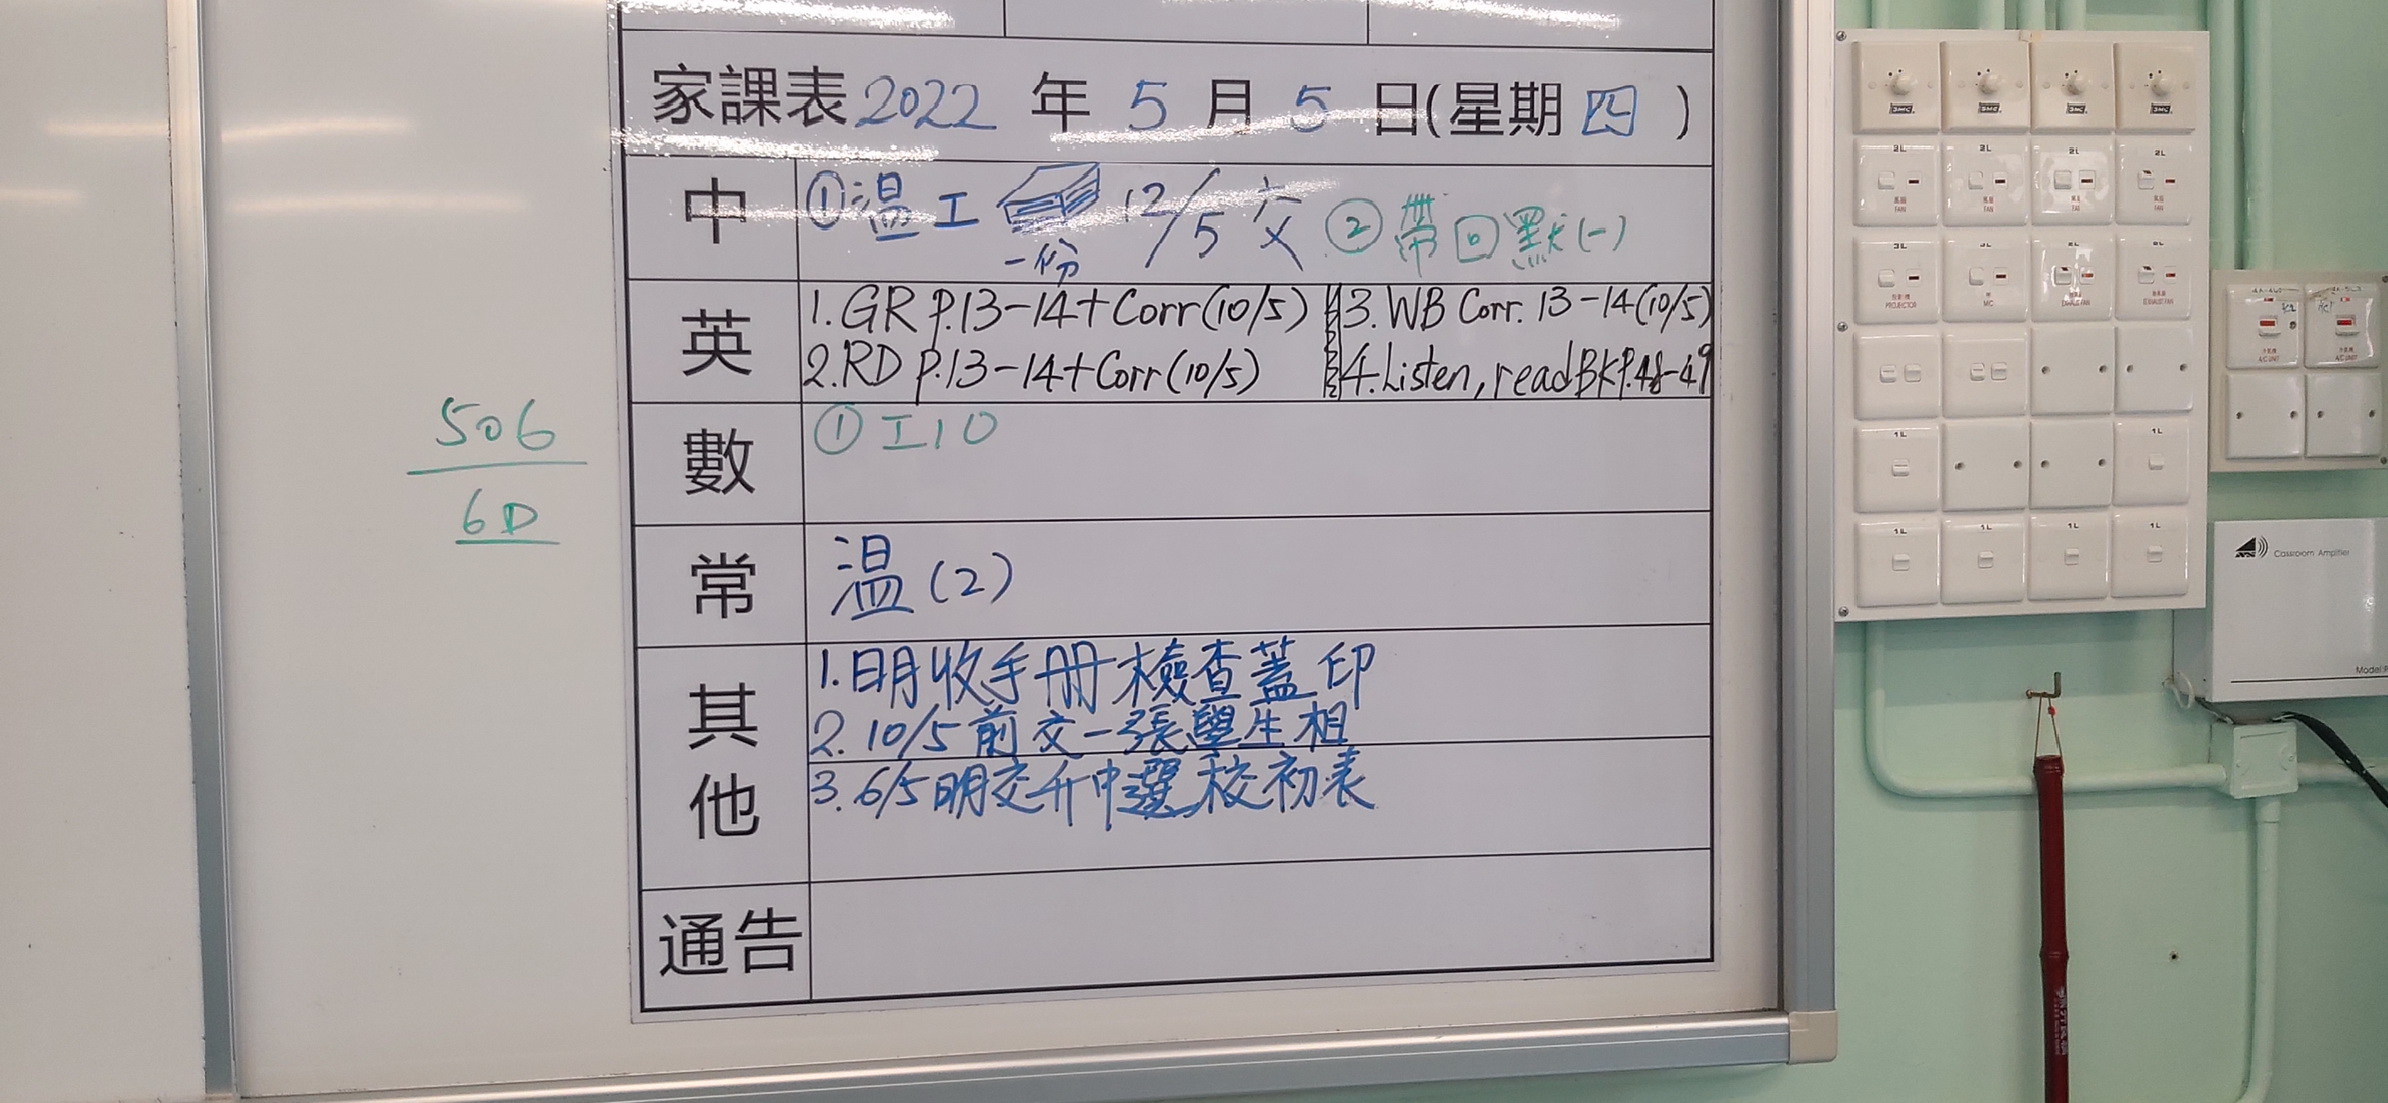 家課表 2022 年 5 月 5 日(星期 四 )
中
①溫工 12/5 交 ② 帶回默(一)
一份
英
1. GR P.13-14+Corr(10/5) 3. WB Corr. 13-14(10/5)
2. RD P.13-14+Corr(10/5) 4. Listen, read BK P.48-49
數
① 工10
常
溫(2)
其他
1. 明收手冊檢查蓋印
2. 10/5前交一張學生相
3. 6/5明交升中選校初表
通告
506
6D
SMC SMC SMC SMC
2L 2L 2L 2L
FAN FAN FAN FAN
3L
PROJECTOR MIC EXHAUST FAN EXHAUST FAN
1L 1L
1L 1L 1L 1L
A/C UNIT A/C UNIT
Classroom Amplifier